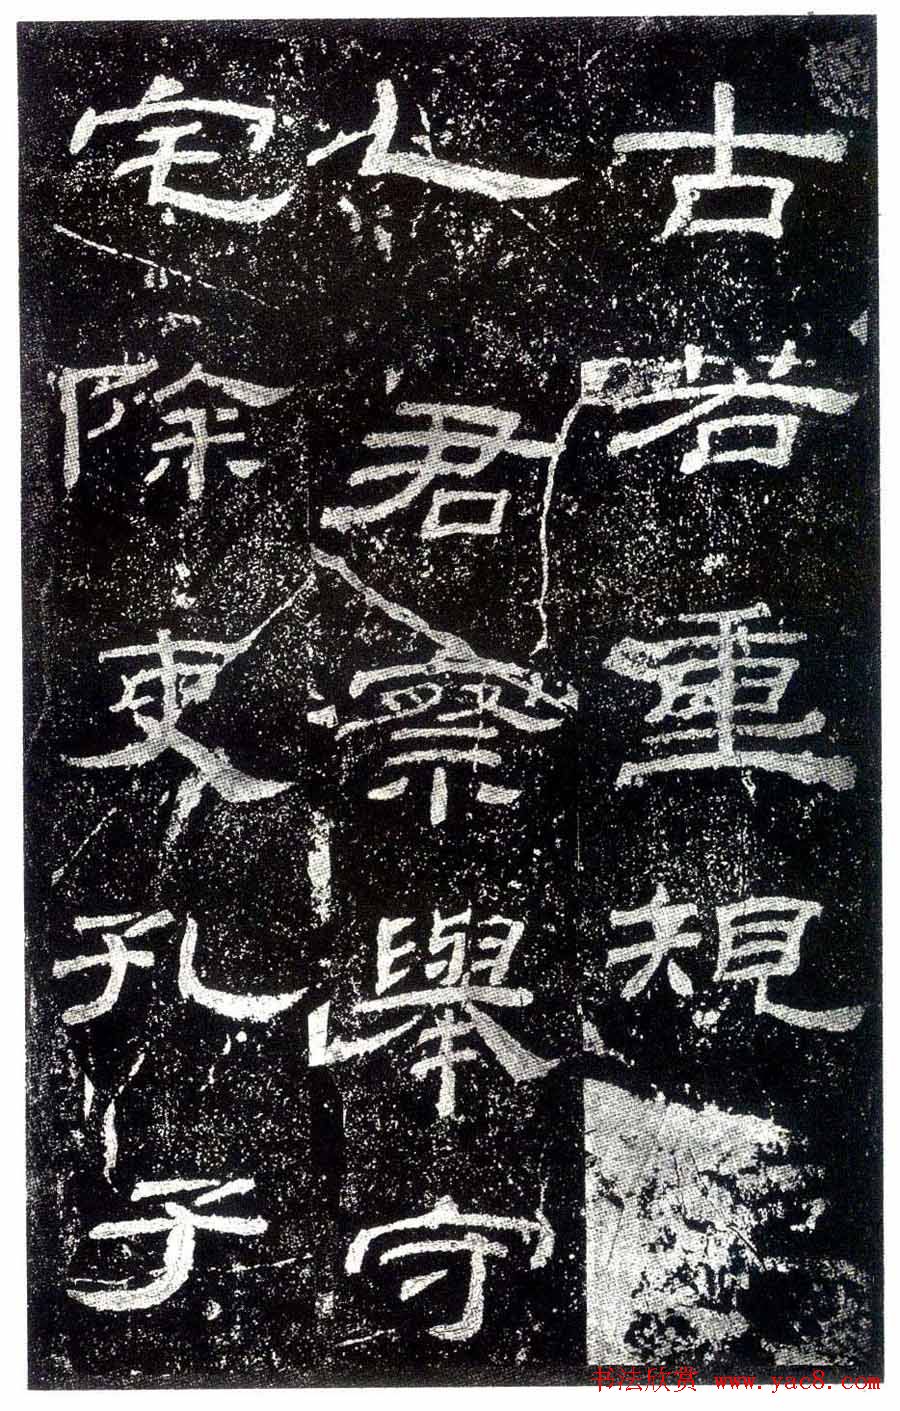 古若重規
乙君察舉守
宅除吏孔子
书法欣赏 www.yac8.com